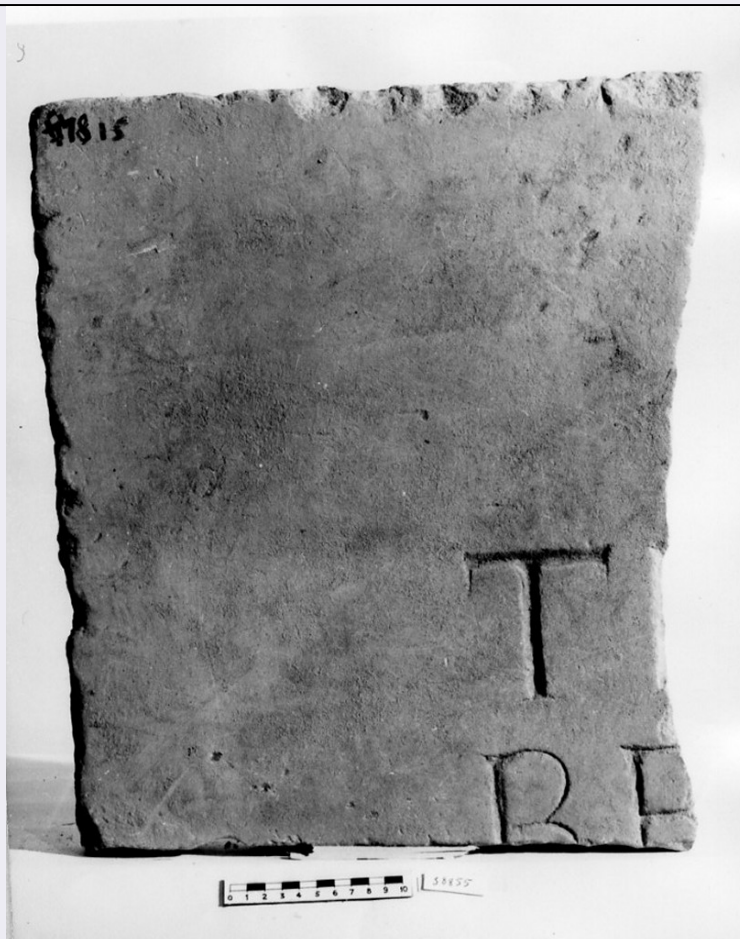 97815
T
RE
0 1 2 3 4 5 6 7 8 9 10